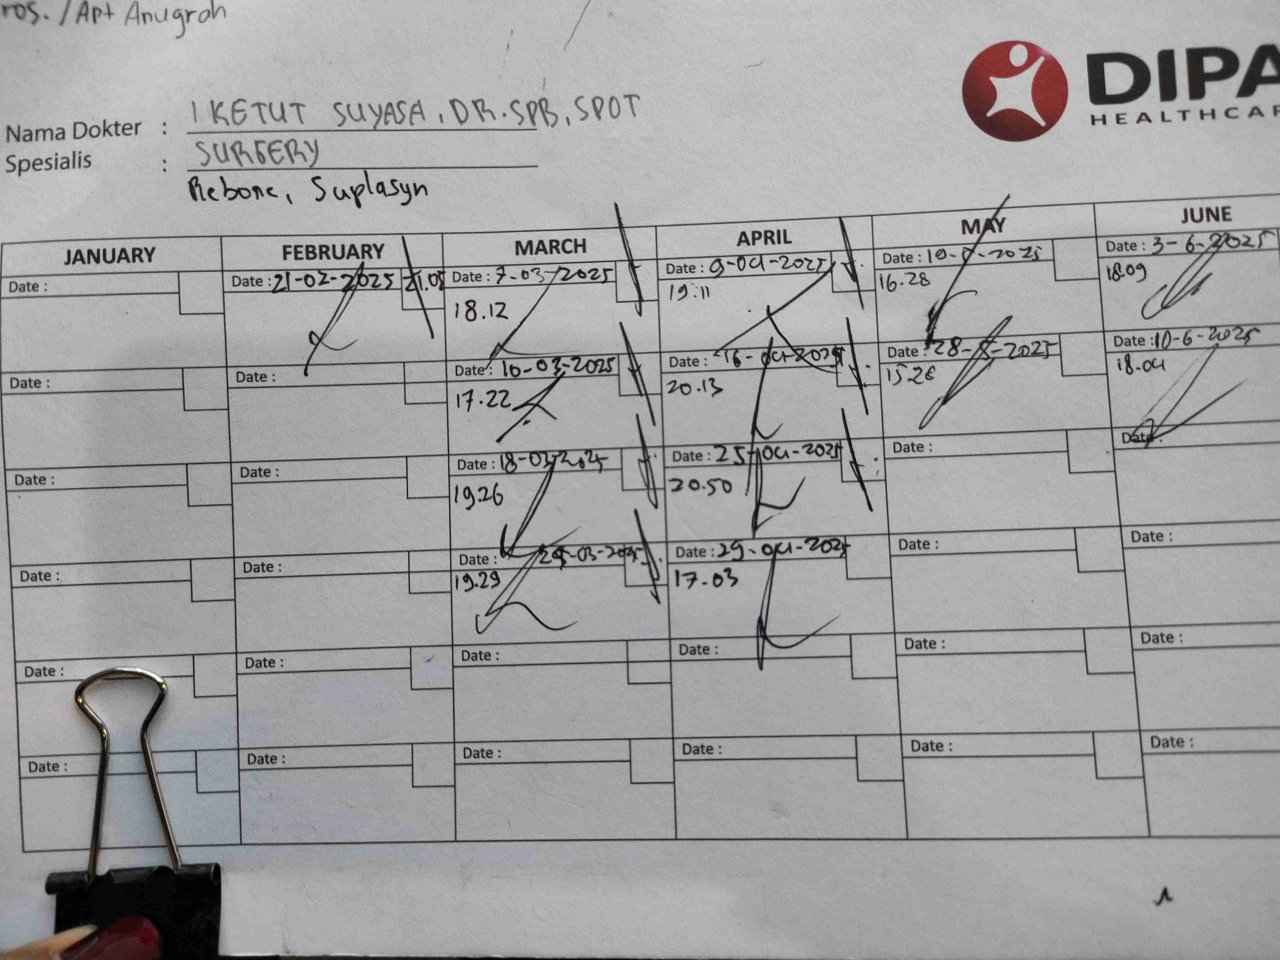 ros. /Apt Anugrah
DIPA
HEALTHCAR
Nama Dokter : I KETUT SUYASA, DR. SPB, SPOT
Spesialis : SURGERY
Rebone, Suplasyn
JANUARY FEBRUARY MARCH APRIL MAY JUNE
Date : Date : 21-02-2025 21.05 Date : 7-03-2025 Date : 9-04-2025 Date : Date : 3-6-2025
18.12 19:11 16.28 18.09
Date : Date : Date : 10-03-2025 Date : 16-04-2025 Date : 28-5-2025 Date : 10-6-2025
17.22 20.13 18.04
Date : Date : 18-03-2025 Date : 25-04-2025 Date : Date :
Date : 19.26 20.50
Date : Date : Date : 03-2025 Date : 29-04-2025 Date : Date :
19.29 17.03
Date : Date : Date : Date : Date : Date :
Date : Date : Date : Date : Date : Date :